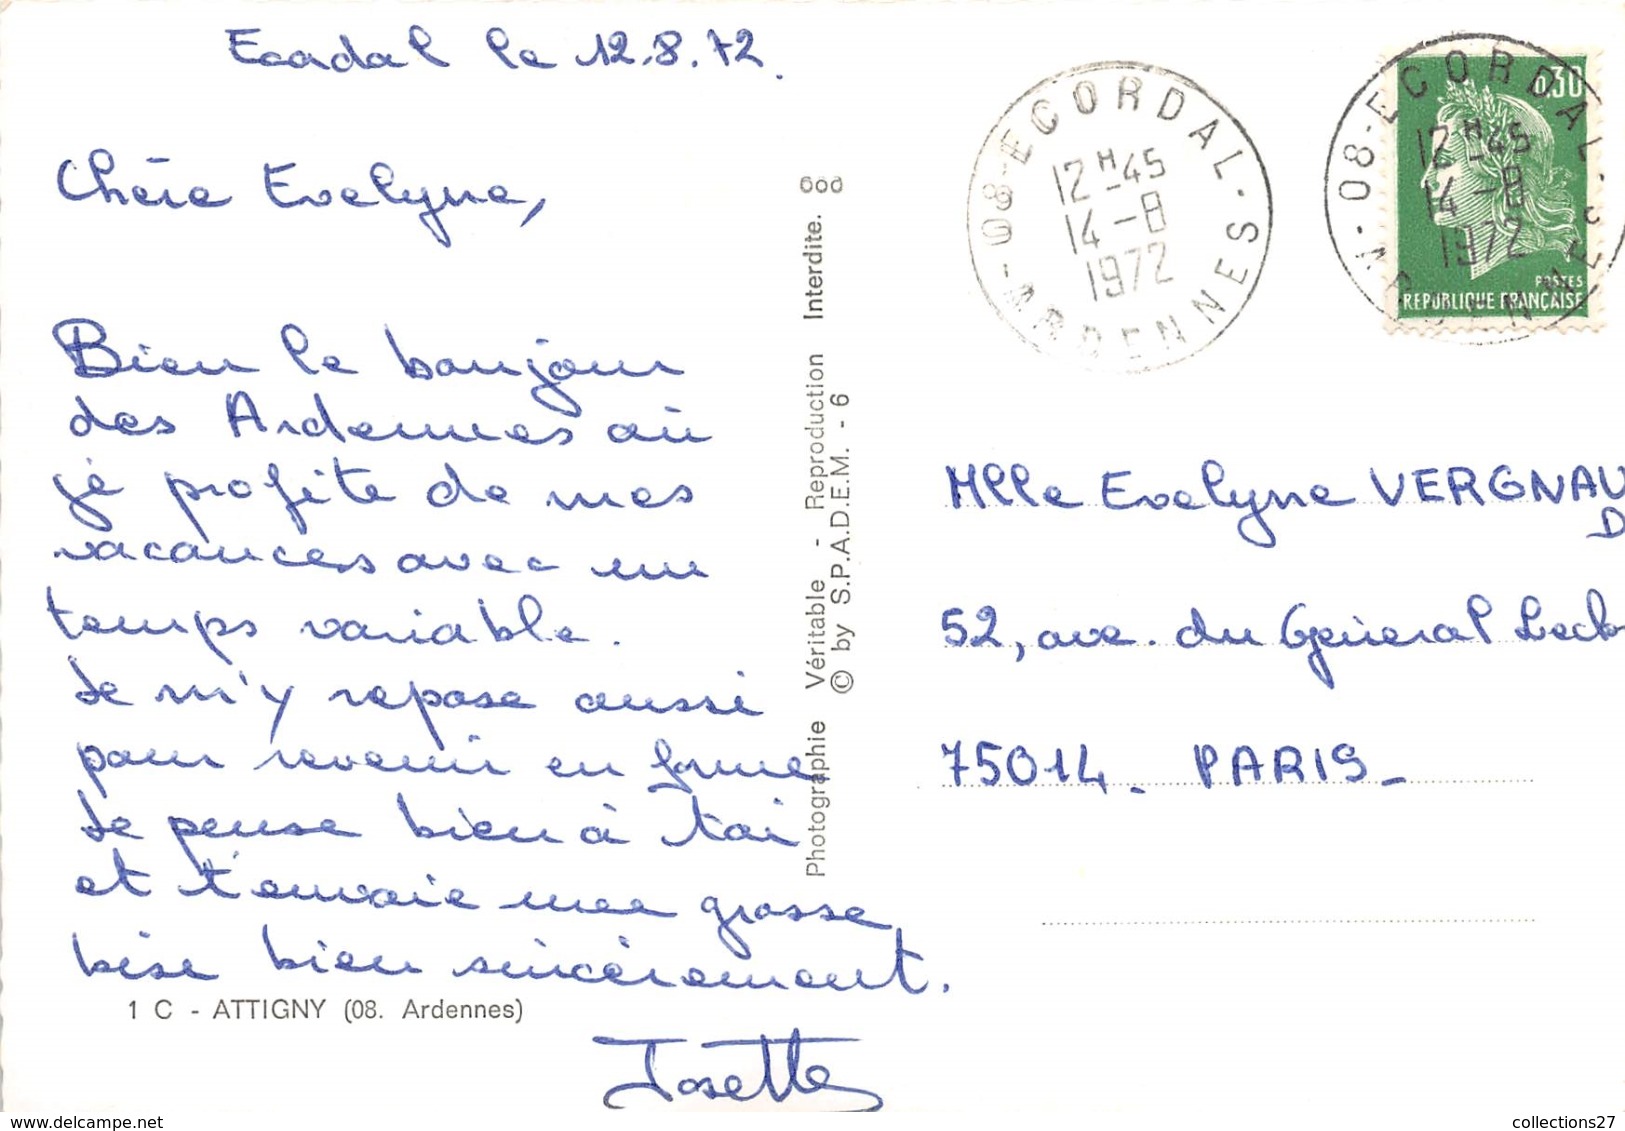 Ecordal le 12.8.72.
Chère Evelyne,
Bien le bonjour
des Ardennes où
je profite de mes
vacances avec un
temps variable.
Je m'y repose aussi
pour revenir en forme
Je pense bien à toi
et t'envoie une grosse
bise bien sincèrement.
Josette
1 C - ATTIGNY (08. Ardennes)
Photographie Véritable - Reproduction Interdite.
© by S.P.A.D.E.M. - 6
08-ECORDAL-
12H-45
14-8
1972
ARDENNES
0,30
POSTES
REPUBLIQUE FRANÇAISE
08-ECORDAL-
12H-45
14-8
1972
ARDENNES
Mlle Evelyne VERGNAU
D
52, ave. du Général Lecle
75014 - PARIS -
www.delcampe.net
collections27